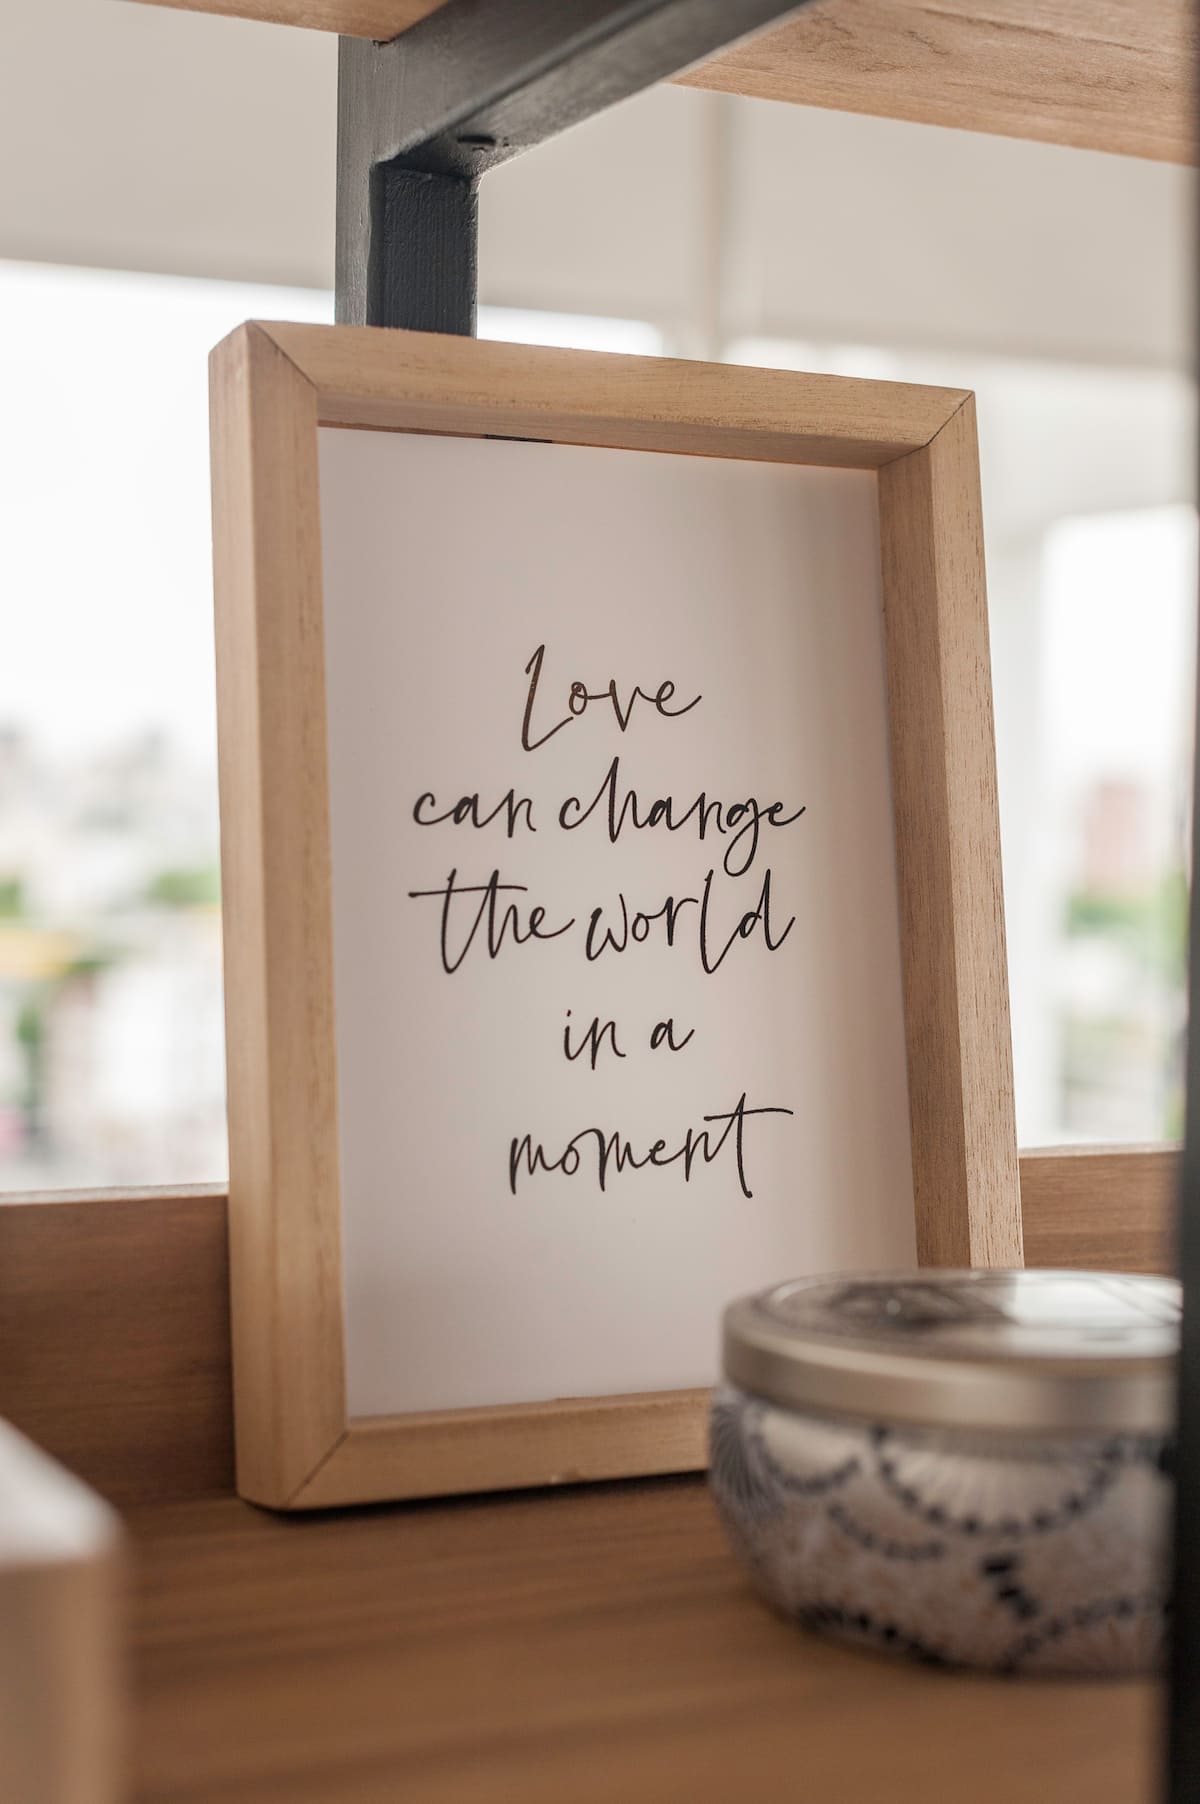 Love
can change
the world
in a
moment